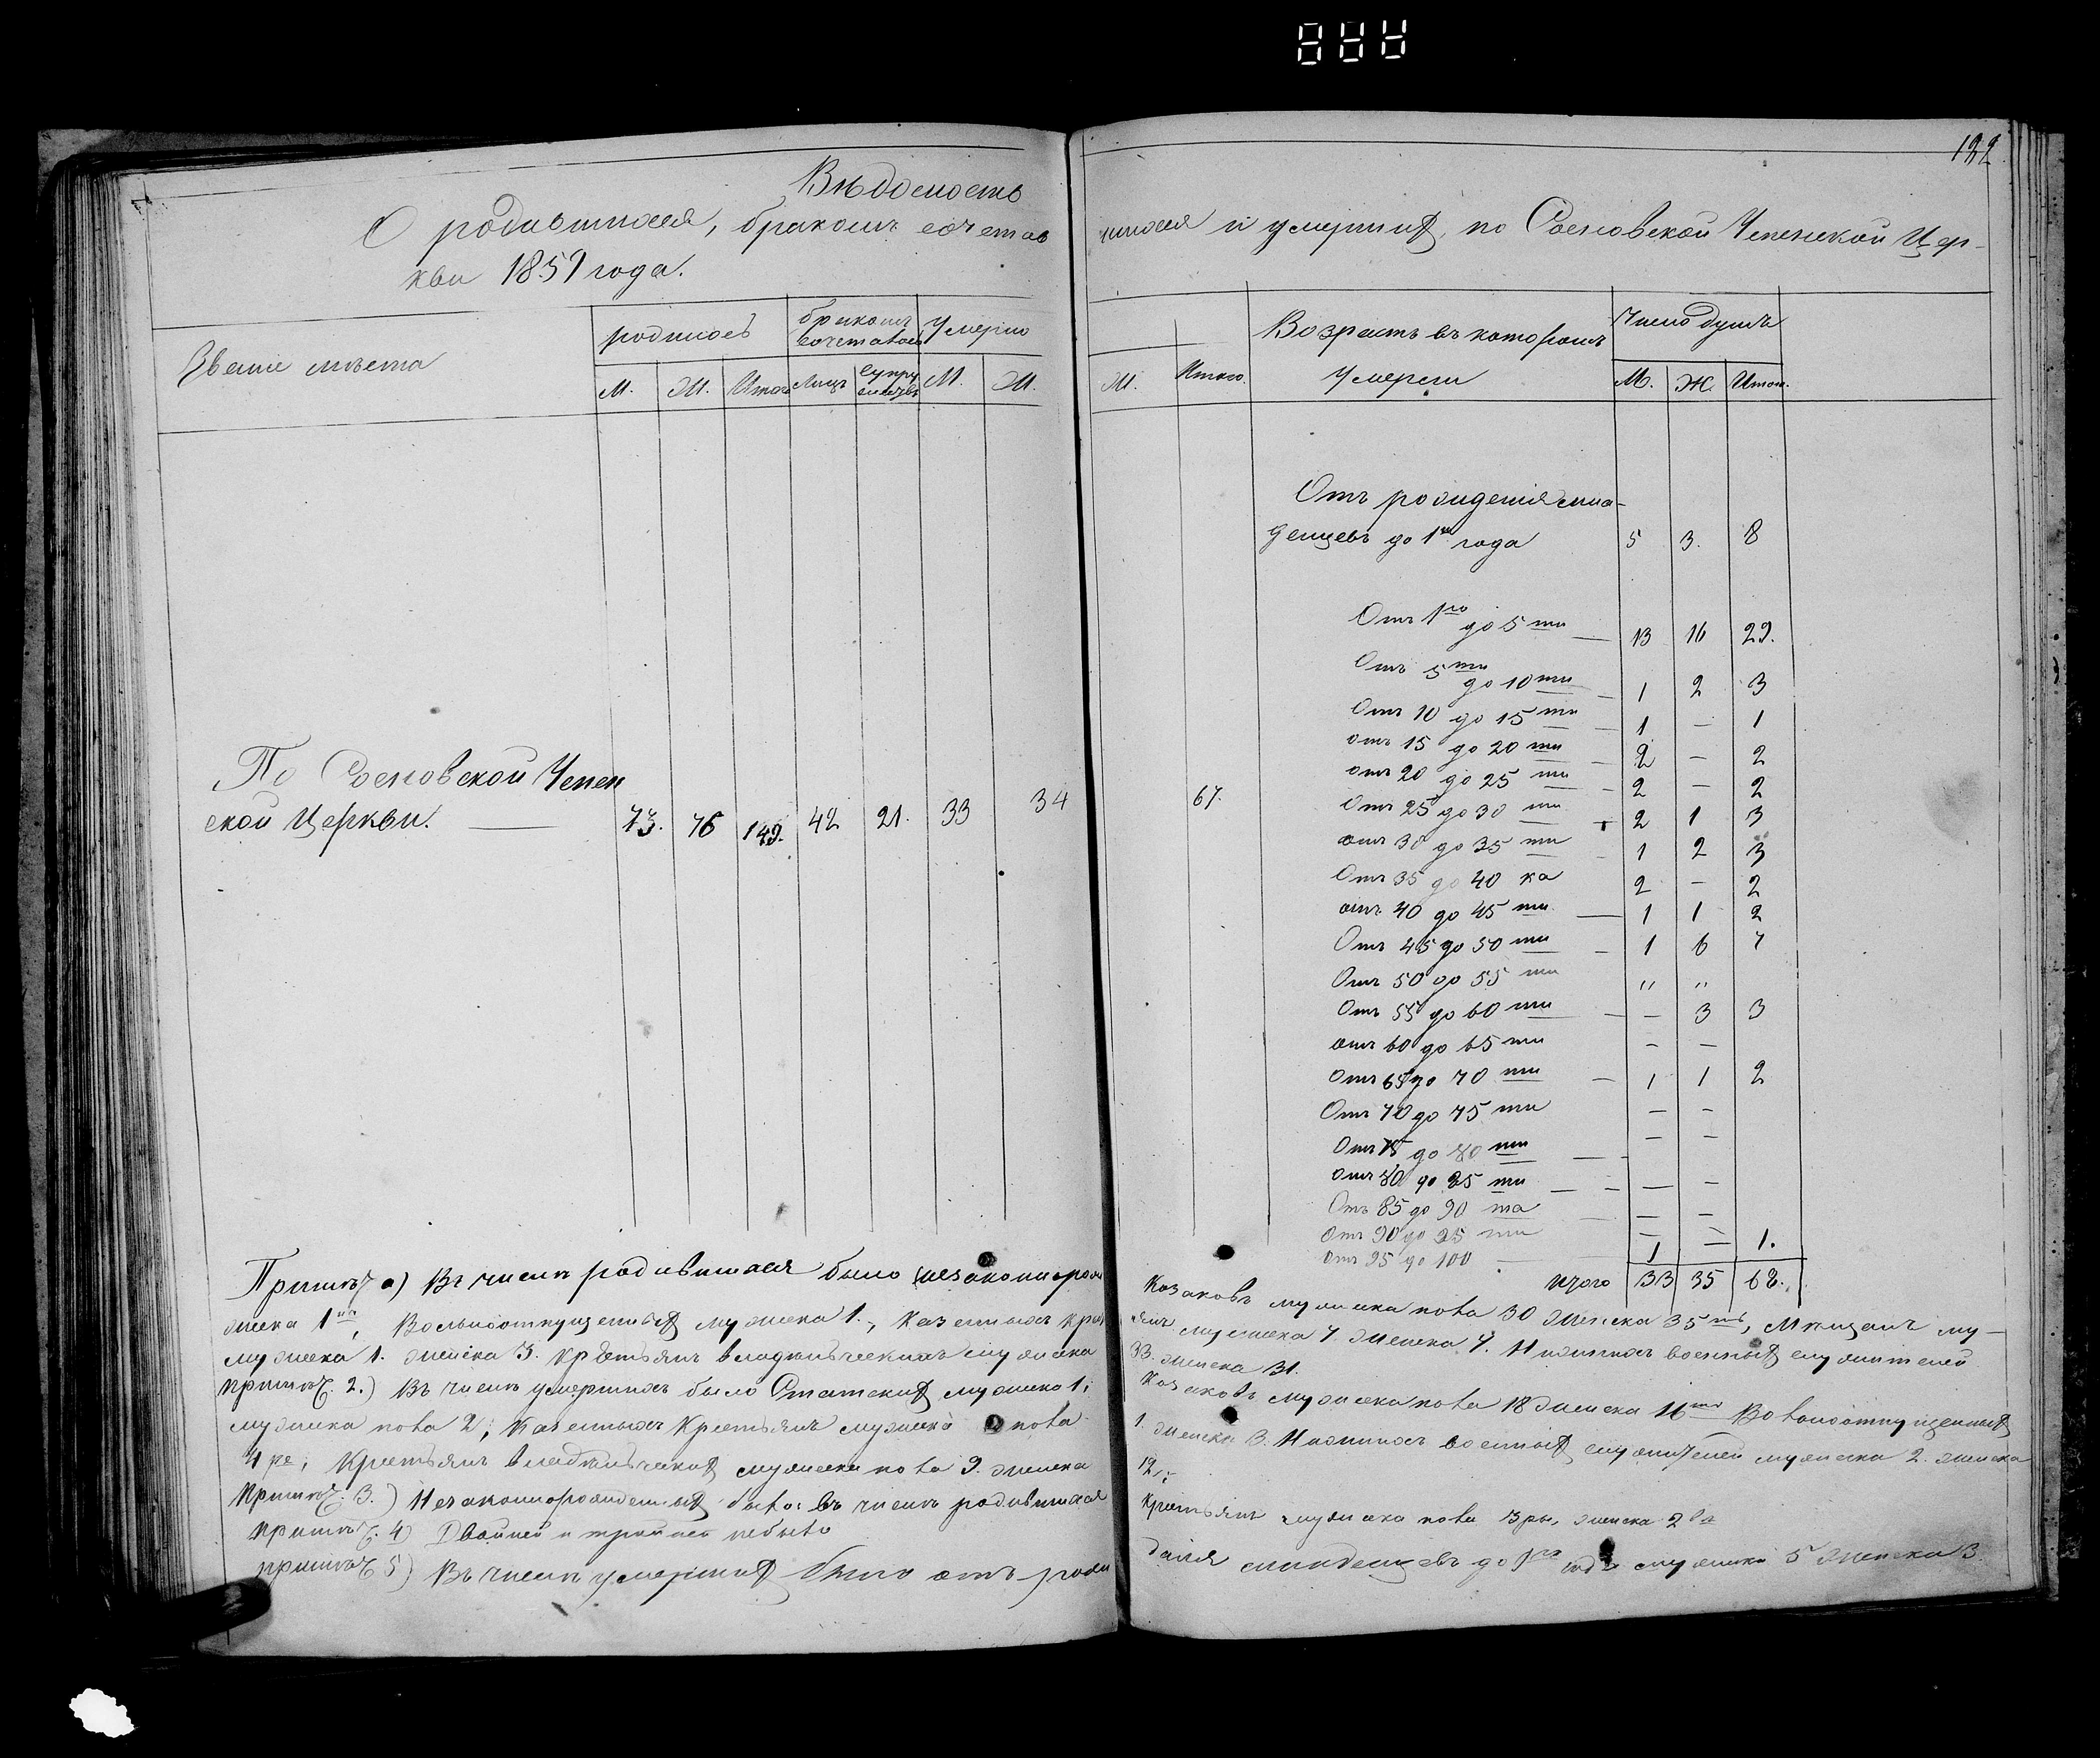 122
Вѣдомость
О родившихся, бракомъ сочетав
шихся и умершихъ, по Сосновской Успенской Цер-
кви 1857 года.
Званіе мѣста
родилось
бракомъ сочетавось
Умерло
М. Ж. Итого Лицъ Супру М. Ж.
Ж. Итого.
Возрастъ въ которомъ
умерли
Число душъ
М. Ж. Итого.
По Сосновской Успен
ской Церкви. 73. 76 149. 42 21. 33 34
67.
Отъ рожденія мла-
денцевъ до 1го года 5 3. 8
Отъ 1го до 5ти — 13 16 29.
Отъ 5ти до 10ти — 1 2 3
Отъ 10 до 15ти — 1 — 1
отъ 15 до 20ти — 2 — 2
отъ 20 до 25ти — 2 — 2
Отъ 25 до 30ти 2 1 3
отъ 30 до 35ти — 1 2 3
Отъ 35 до 40ка 2 — 2
отъ 40 до 45ти — 1 1 2
Отъ 45 до 50ти — 1 6 7
Отъ 50 до 55ти " "
Отъ 55 до 60ти — — 3 3
отъ 60 до 65ти — —
Отъ 65 до 70ти — 1 1 2
Отъ 70 до 75ти — —
Отъ 75 до 80ти — — —
отъ 80 до 85ти — — — —
Отъ 85 до 90та — — —
Отъ 90 до 95ти — —
отъ 95 до 100 — 1 — 1.
Итого 33 35 68.
Примѣч а) Въ числѣ родившихся было незаконорож
женска 1на, Вольноотпущенныхъ мужеска 1., Казенныхъ крес
мужеска 1. женска 3. Крестьянъ владѣльческихъ мужеска
Примѣч. 2.) Въ числѣ умершихъ было Статскихъ мужеска 1;
мужеска пова 2; Казенныхъ Крестьянъ мужеска пова
4ре; Крестьянъ владѣльческихъ мужеска пова 9. женска
Примѣч. 3.) Незаконорожденныхъ было въ числѣ родившихся
Примѣч. 4) Двойней и тройней небыло
Примѣч 5) Въ числѣ умершихъ было отъ рож
Козаковъ мужеска пова 30 женска 35ть, Мѣщанъ му-
янъ мужеска 7. женска 7. Нижнихъ военныхъ служителей
33. женска 31.
Козаковъ мужеска пова 18 женска 16ть Вольноотпущенныхъ
1. женска 3. Нижнихъ военныхъ служителей мужеска 2. женска
12.;
Крестьянъ мужеска пова 3ры, женска 2ва
данія младенцевъ до 1го года мужеска 5 женска 3.